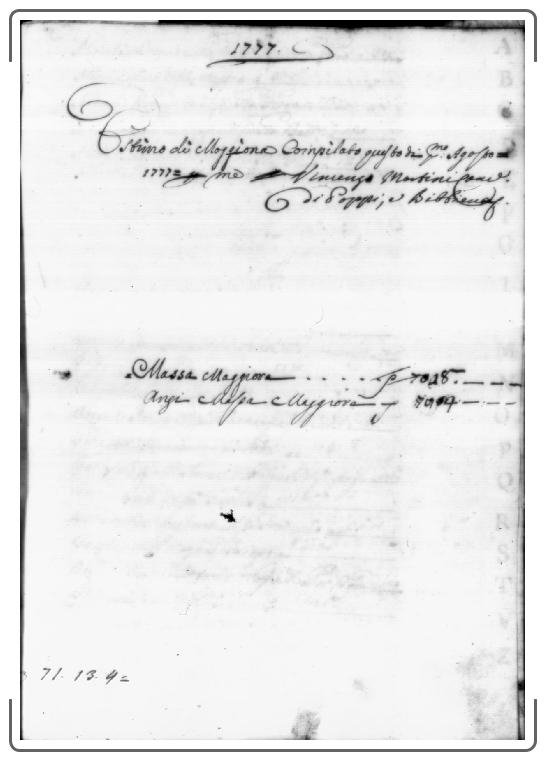 1777.
Estimo di Moggiona Compilato questo di P.mo Agosto
1777= p me Vincenzo Martini
di Poppi, e Bibbiena
Massa Maggiore . . . . . p
Anzi Massa Maggiore p
71. 13. 4=